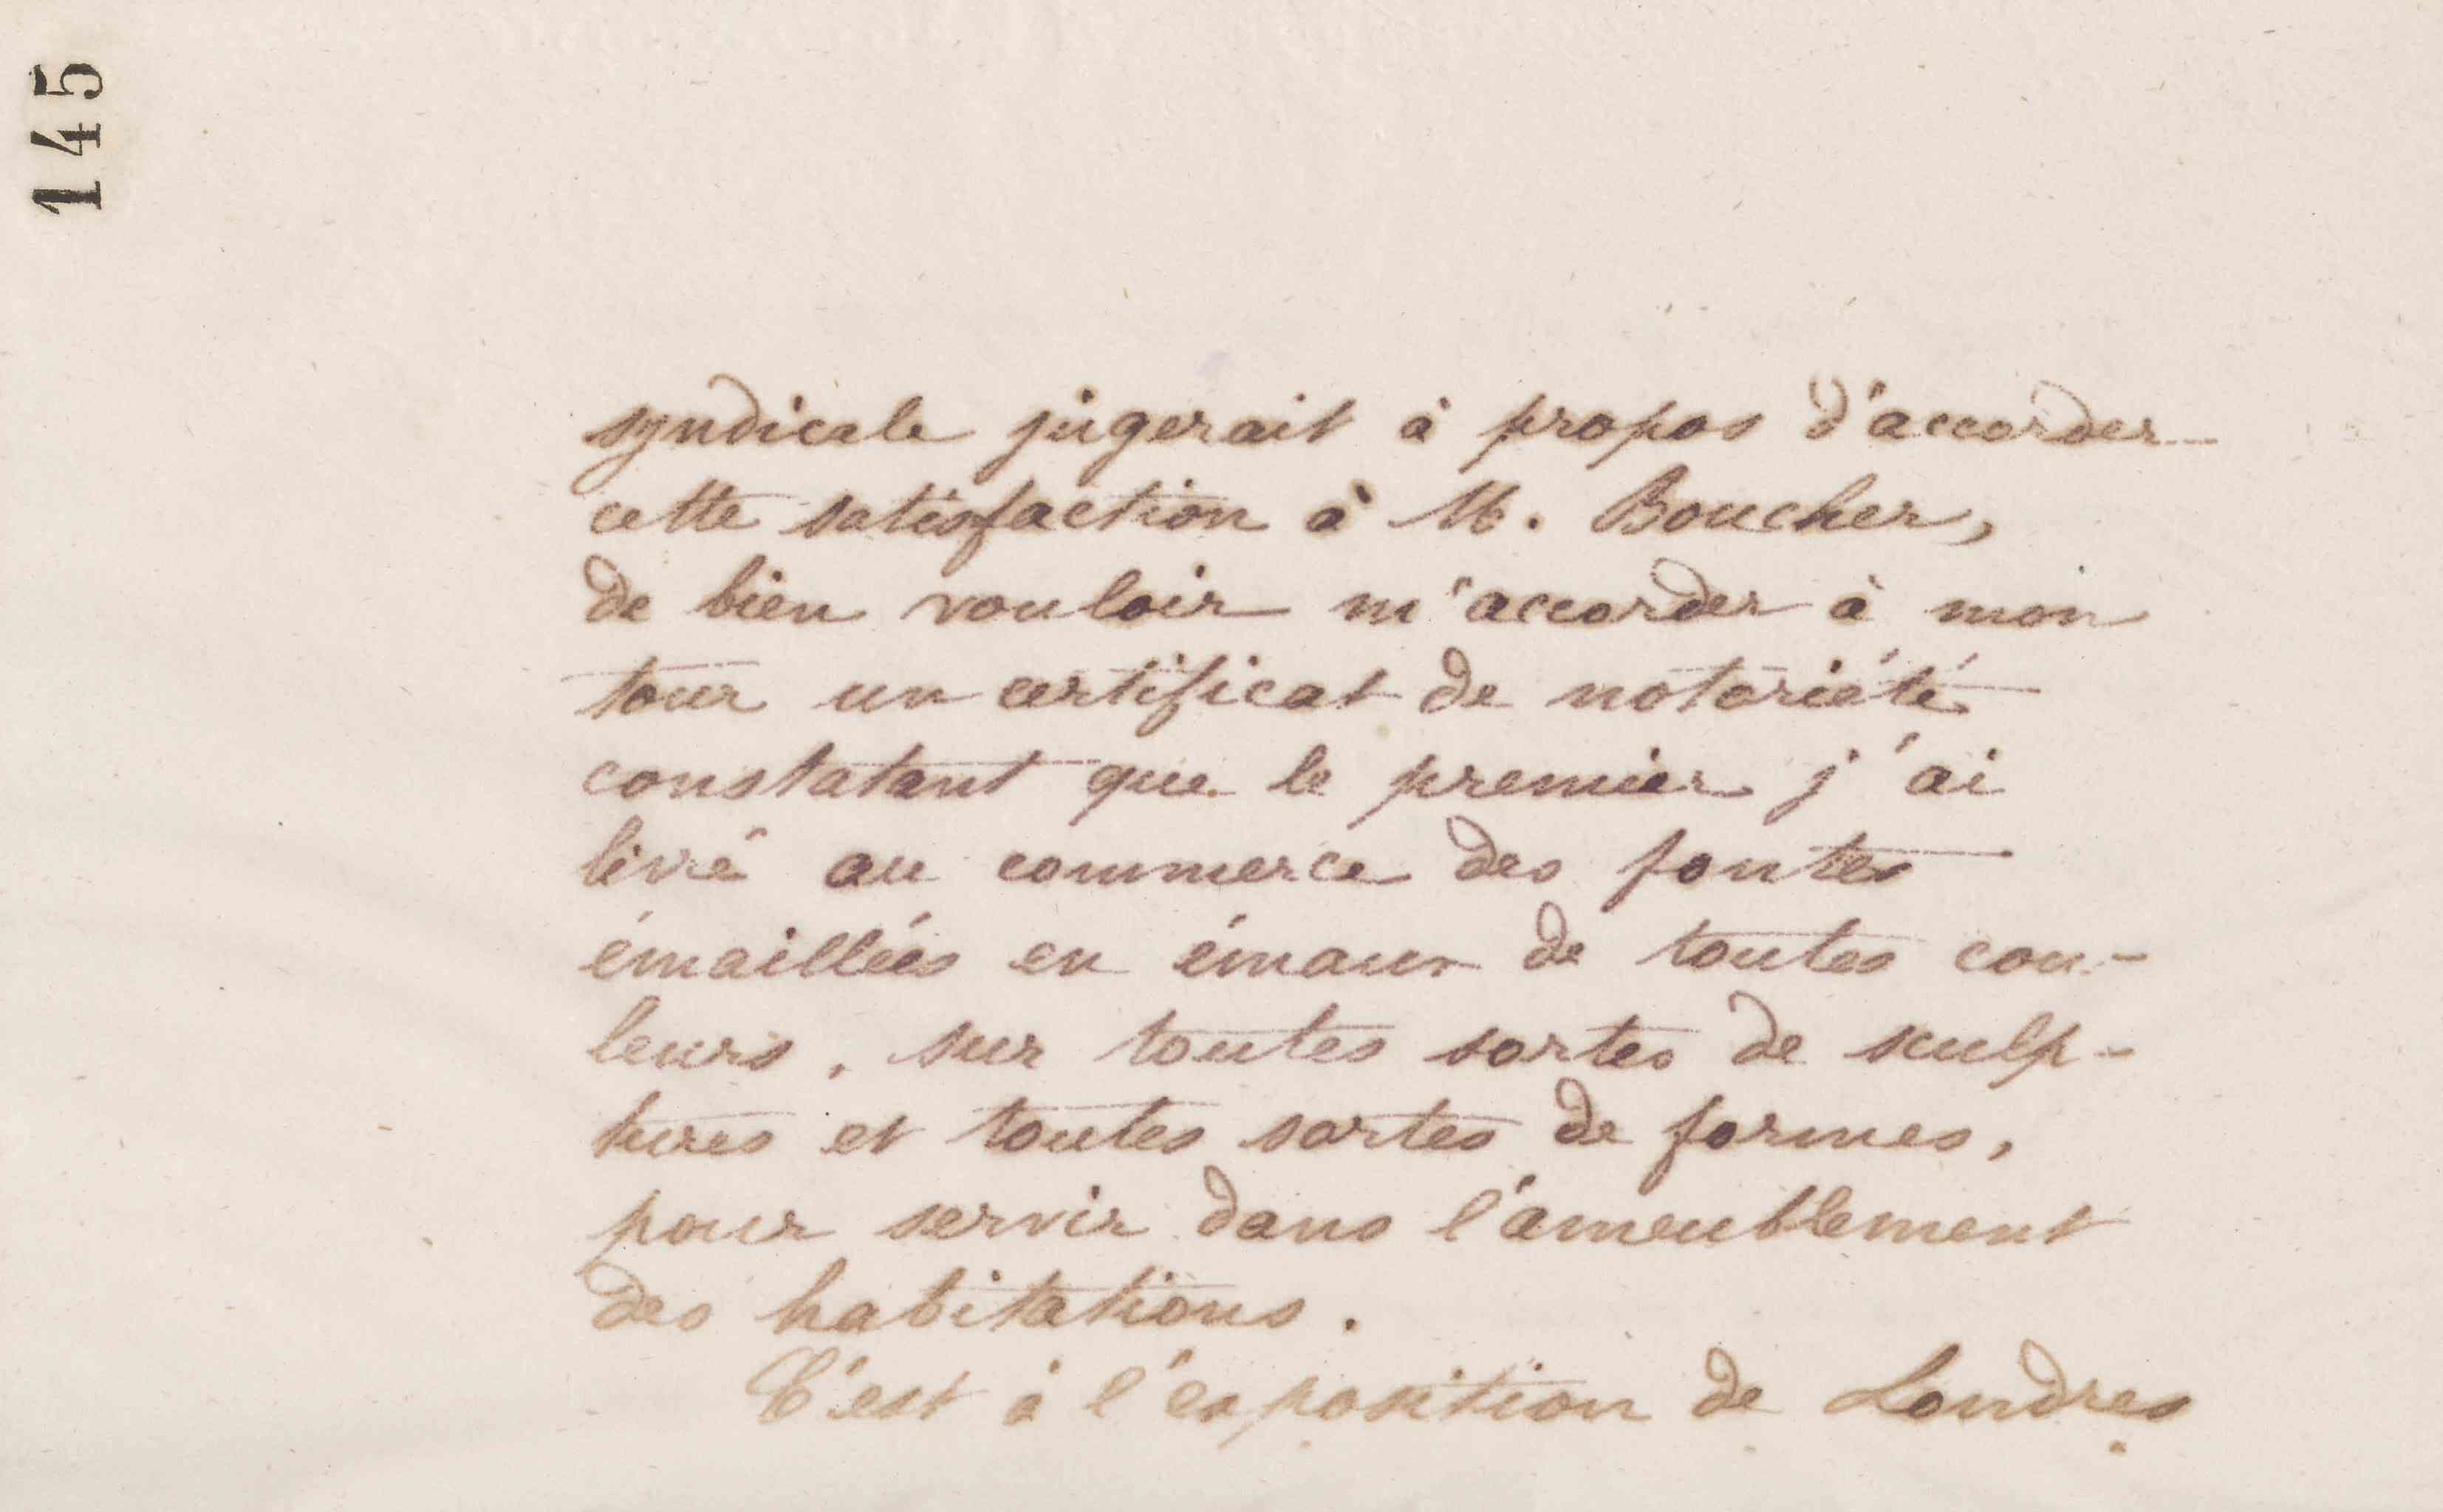 145
syndicale jugerait à propos d'accorder
cette satisfaction à M. Boucher,
de bien vouloir m'accorder à mon
tour un certificat de notoriété
constatant que le premier j'ai
livré au commerce des fontes
émaillées en émaux de toutes cou-
leurs, sur toutes sortes de sculp-
tures et toutes sortes de formes,
pour servir dans l'ameublement
des habitations.
C'est à l'exposition de Londres